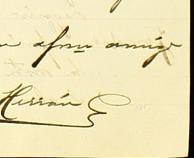 afmo amigo
Herrán